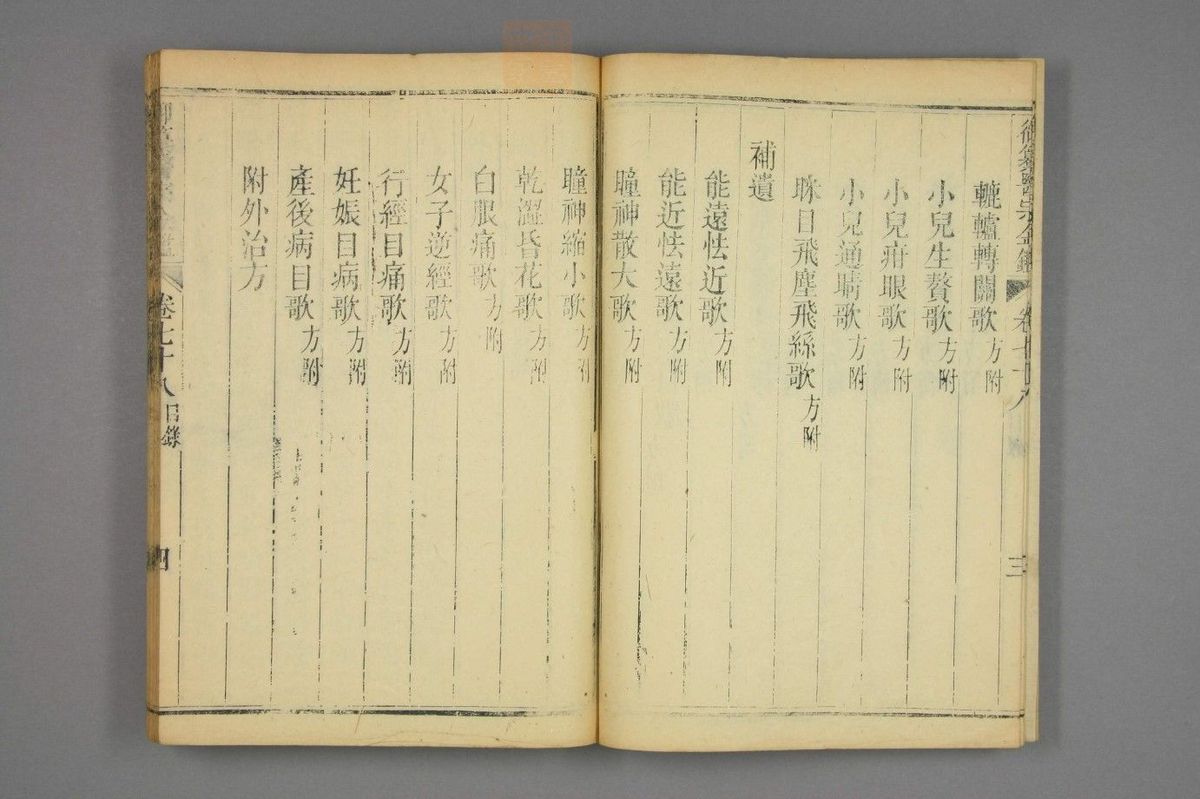 御纂醫宗金鑑 卷七十八 三
轆轤轉關歌 方附
小兒生贅歌 方附
小兒疳眼歌 方附
小兒通睛歌 方附
眯目飛塵飛絲歌 方附
補遺
能遠怯近歌 方附
能近怯遠歌 方附
瞳神散大歌 方附
瞳神縮小歌 方附
乾澀昏花歌 方附
白眼痛歌 方附
女子逆經歌 方附
行經目痛歌 方附
妊娠目病歌 方附
產後病目歌 方附
附外治方
卷七十八 目錄 四